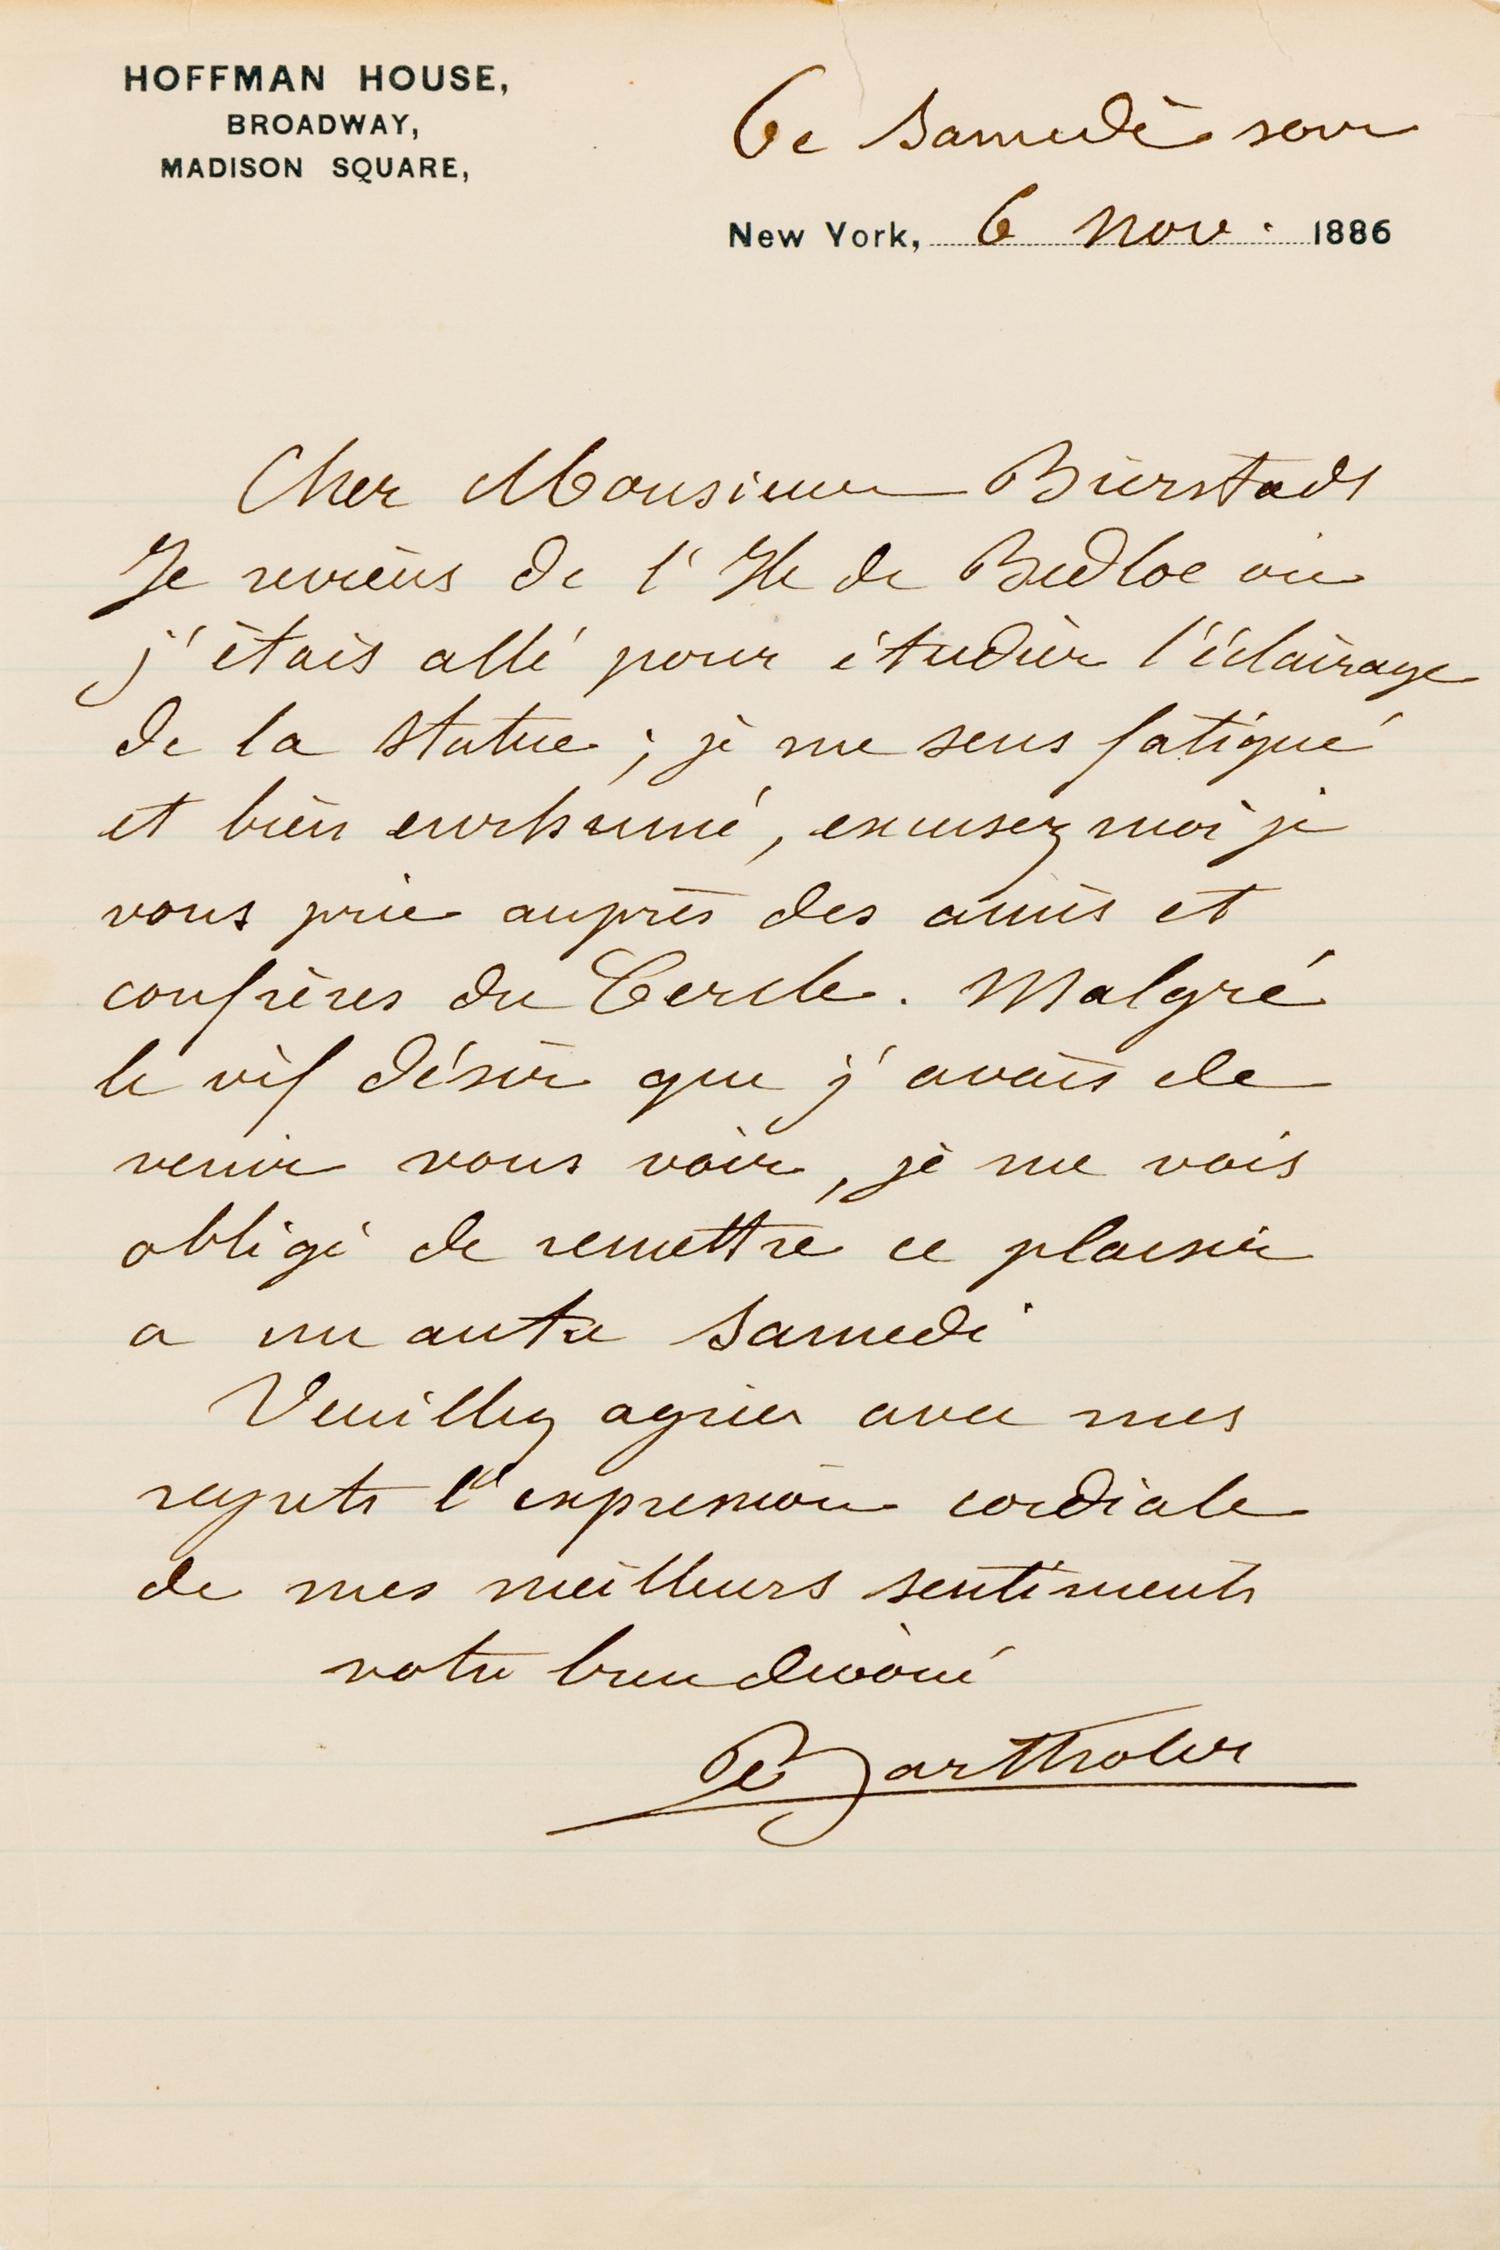 HOFFMAN HOUSE,
BROADWAY,
MADISON SQUARE,
Ce Samedi soir
New York, 6 Nov. 1886
Cher Monsieur Bierstadt
Je reviens de l'Ile de Bedloe où
j'étais allé pour étudier l'éclairage
de la statue ; je me sens fatigué
et bien enrhumé, excusez moi je
vous prie auprès des amis et
confrères du Cercle. Malgré
le vif désir que j'avais de
venir vous voir, je me vois
obligé de remettre ce plaisir
a un autre Samedi
Veuillez agréer avec mes
regrets l'expression cordiale
de mes meilleurs sentiments
votre bien dévoué
Bartholdi